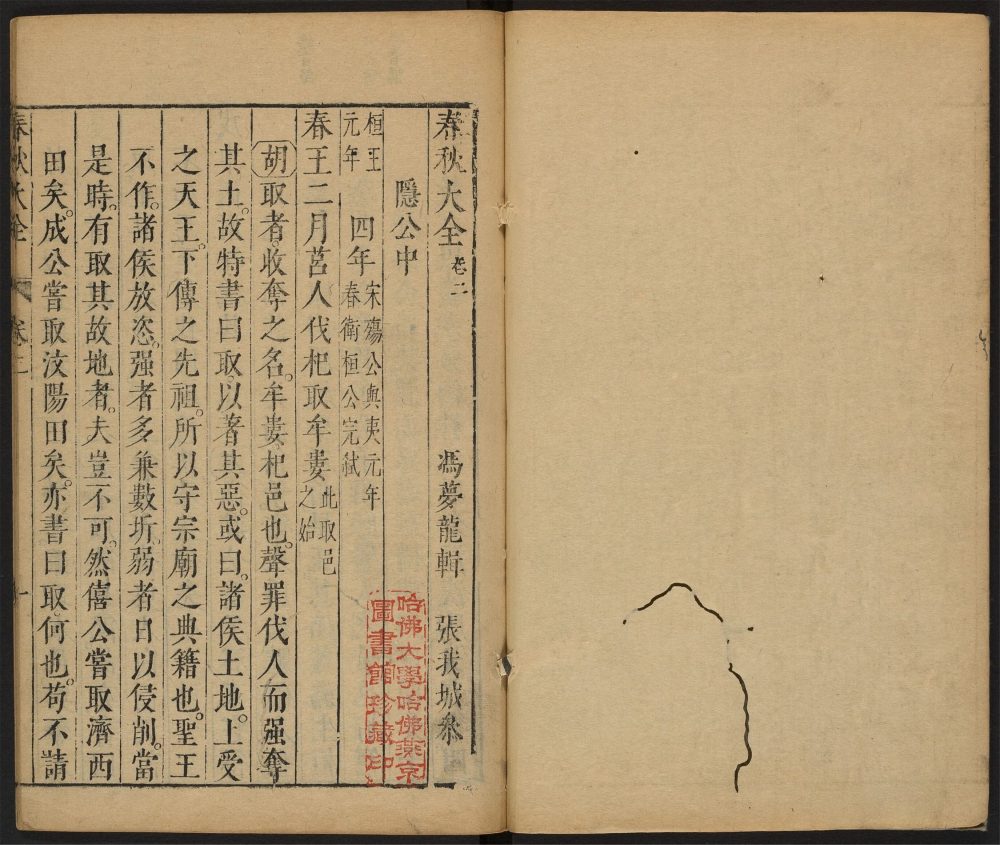 春秋大全卷二 馮夢龍輯 張我城參
隱公中
桓王元年 四年 宋殤公與夷元年春衛桓公完弒
春王二月莒人伐杞取牟婁 此取邑之始
胡取者。收奪之名。牟婁。杞邑也。聲罪伐人而强奪
其土。故特書曰取。以著其惡。或曰。諸侯土地。上受
之天王。下傳之先祖。所以守宗廟之典籍也。聖王
不作。諸侯放恣。强者多兼數圻。弱者日以侵削。當
是時。有取其故地者。夫豈不可。然僖公嘗取濟西
田矣。成公嘗取汶陽田矣。亦書曰取。何也。苟不請
春秋大全 卷二 一
哈佛大學哈佛燕京
圖書館珍藏印